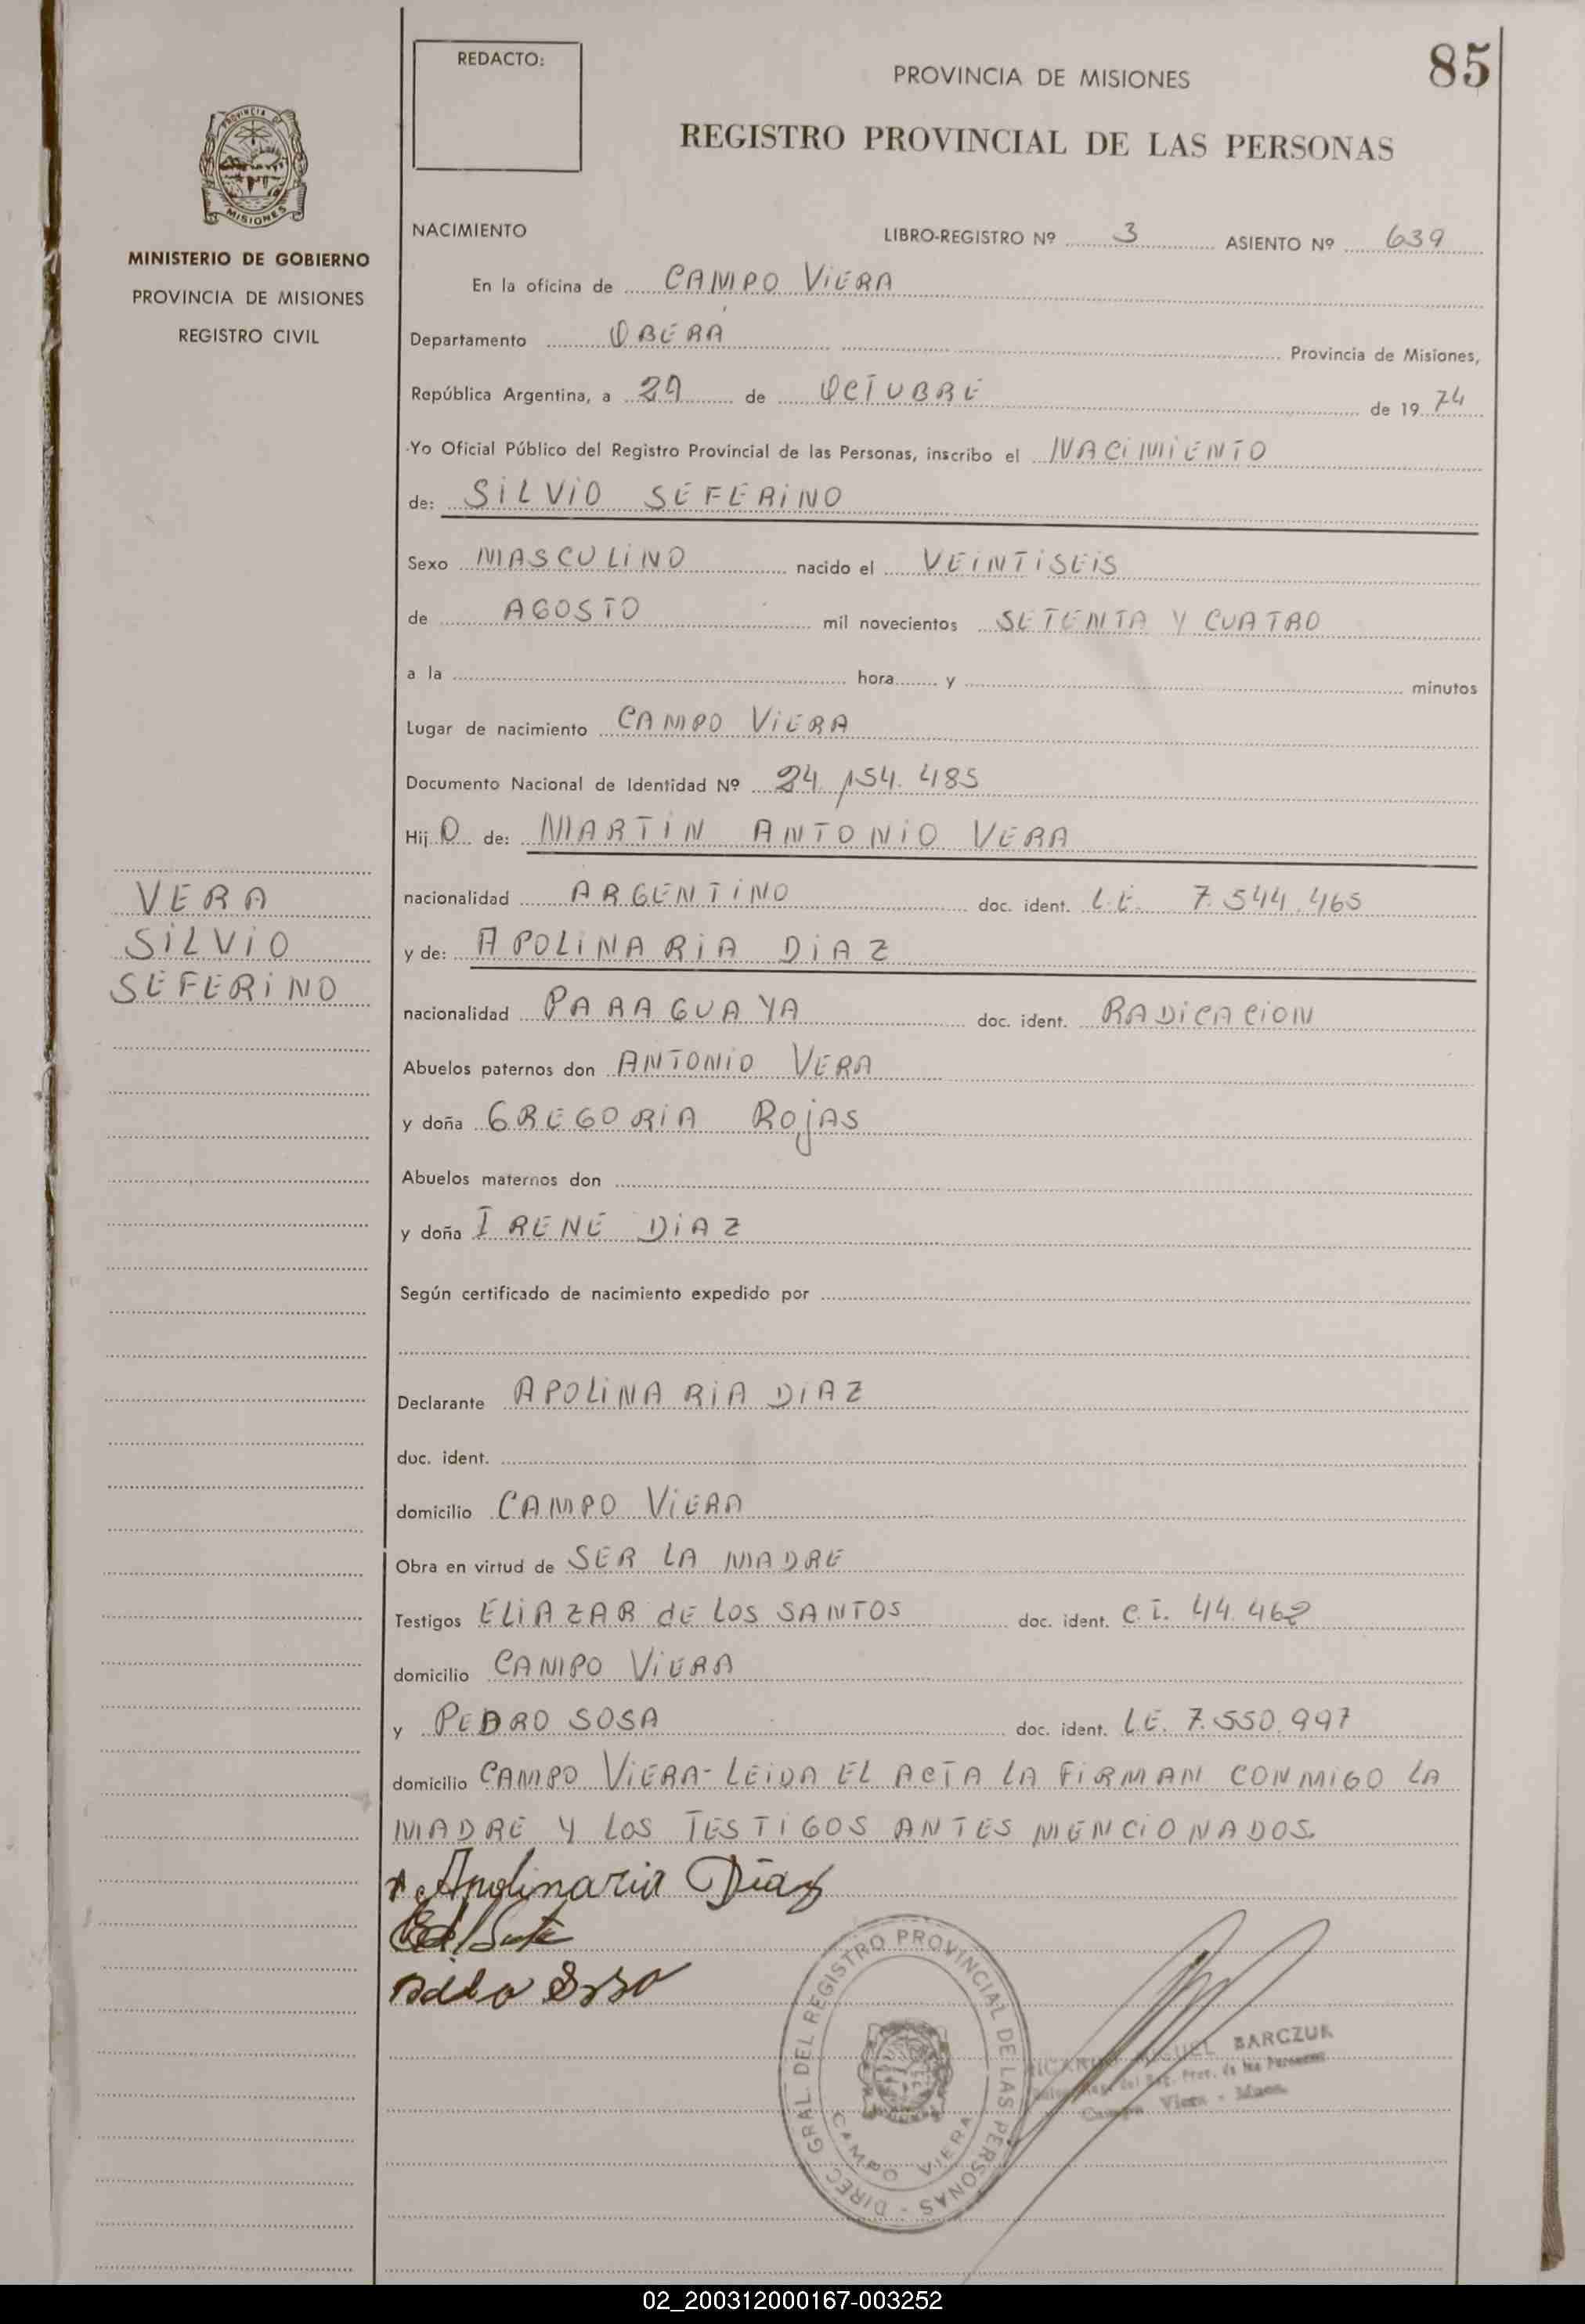 85
REDACTO:
PROVINCIA DE MISIONES
REGISTRO PROVINCIAL DE LAS PERSONAS
PROVINCIA DE
MISIONES
MINISTERIO DE GOBIERNO
PROVINCIA DE MISIONES
REGISTRO CIVIL
NACIMIENTO LIBRO-REGISTRO Nº 3 ASIENTO Nº 639
En la oficina de CAMPO VIERA
Departamento OBERÁ Provincia de Misiones,
República Argentina, a 29 de OCTUBRE de 19 74
Yo Oficial Público del Registro Provincial de las Personas, inscribo el NACIMIENTO
de: SILVIO SEFERINO
Sexo MASCULINO nacido el VEINTISEIS
de AGOSTO mil novecientos SETENTA Y CUATRO
a la hora y minutos
Lugar de nacimiento CAMPO VIERA
Documento Nacional de Identidad Nº 24.154.485
Hij O de: MARTIN ANTONIO VERA
nacionalidad ARGENTINO doc. ident. L.E. 7.544.465
y de: APOLINARIA DIAZ
nacionalidad PARAGUAYA doc. ident. RADICACION
Abuelos paternos don ANTONIO VERA
y doña GREGORIA ROJAS
Abuelos maternos don
y doña IRENE DIAZ
Según certificado de nacimiento expedido por
Declarante APOLINARIA DIAZ
doc. ident.
domicilio CAMPO VIERA
Obra en virtud de SER LA MADRE
Testigos ELIAZAR dE LOS SANTOS doc. ident. C.I. 44.462
domicilio CAMPO VIERA
y PEDRO SOSA doc. ident. L.E. 7.550.997
domicilio CAMPO VIERA- LEIDA EL ACTA LA FIRMAN CONMIGO LA
MADRE Y LOS TESTIGOS ANTES MENCIONADOS.
VERA
SILVIO
SEFERINO
Apolinaria Diaz
DIREC. GRAL. DEL REGISTRO PROVINCIAL DE LAS PERSONAS -
CAMPO VIERA
BARCZUK
Reg. Prov. de las Personas
Campo Viera - Mnes.
02_200312000167-003252